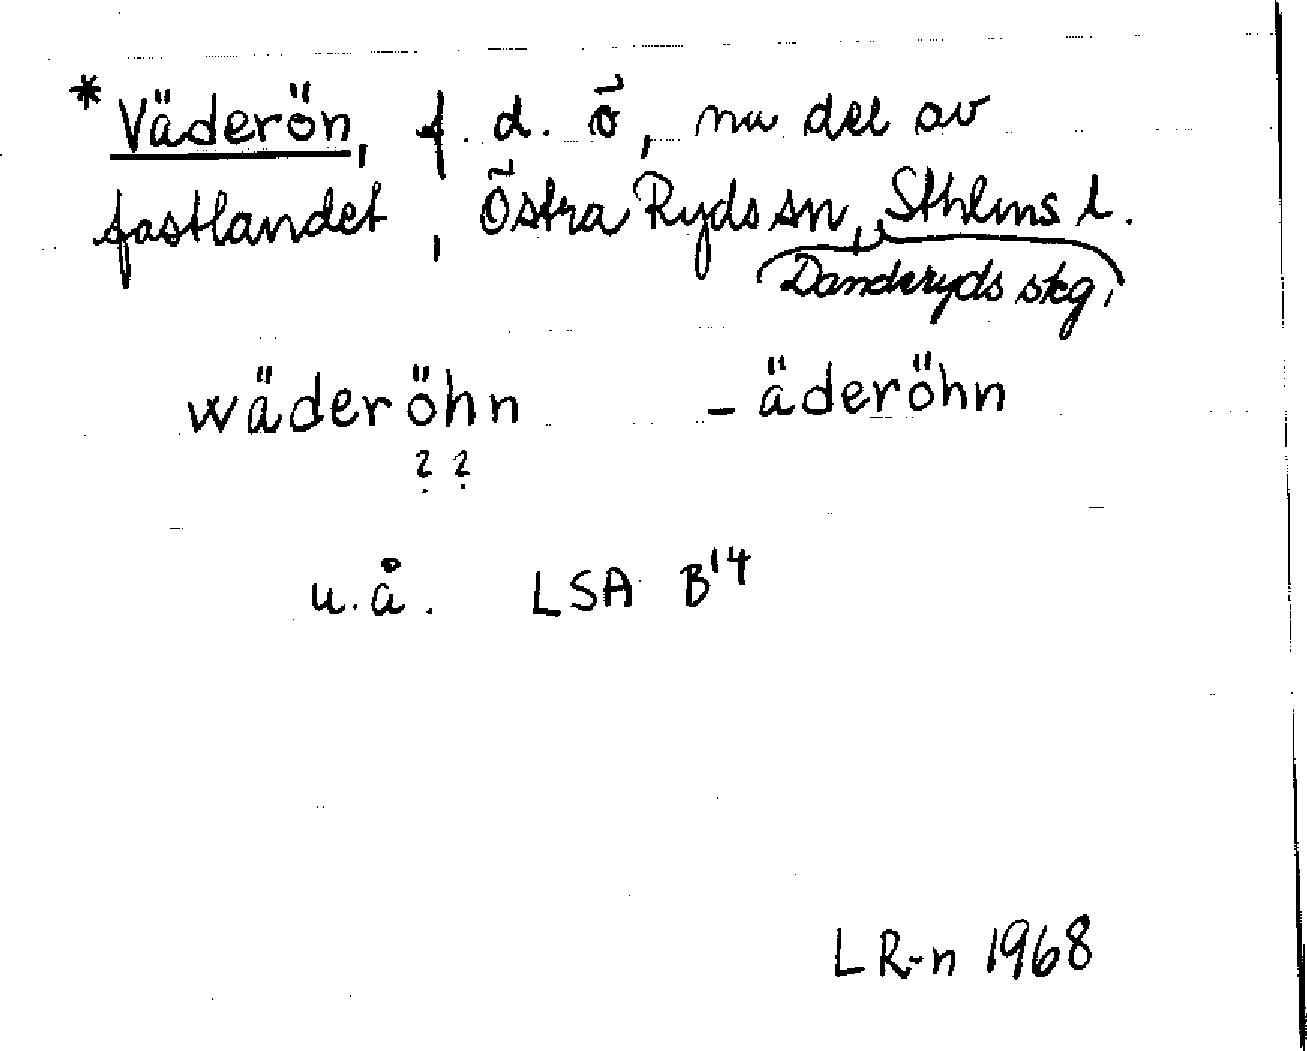 *Väderön, f. d. ö, nu del av
fastlandet, Östra Ryds sn, Sthlms l.
Danderyds skg,
wäderöhn -äderöhn
? ?
u.å. LSA B14
LR-n 1968